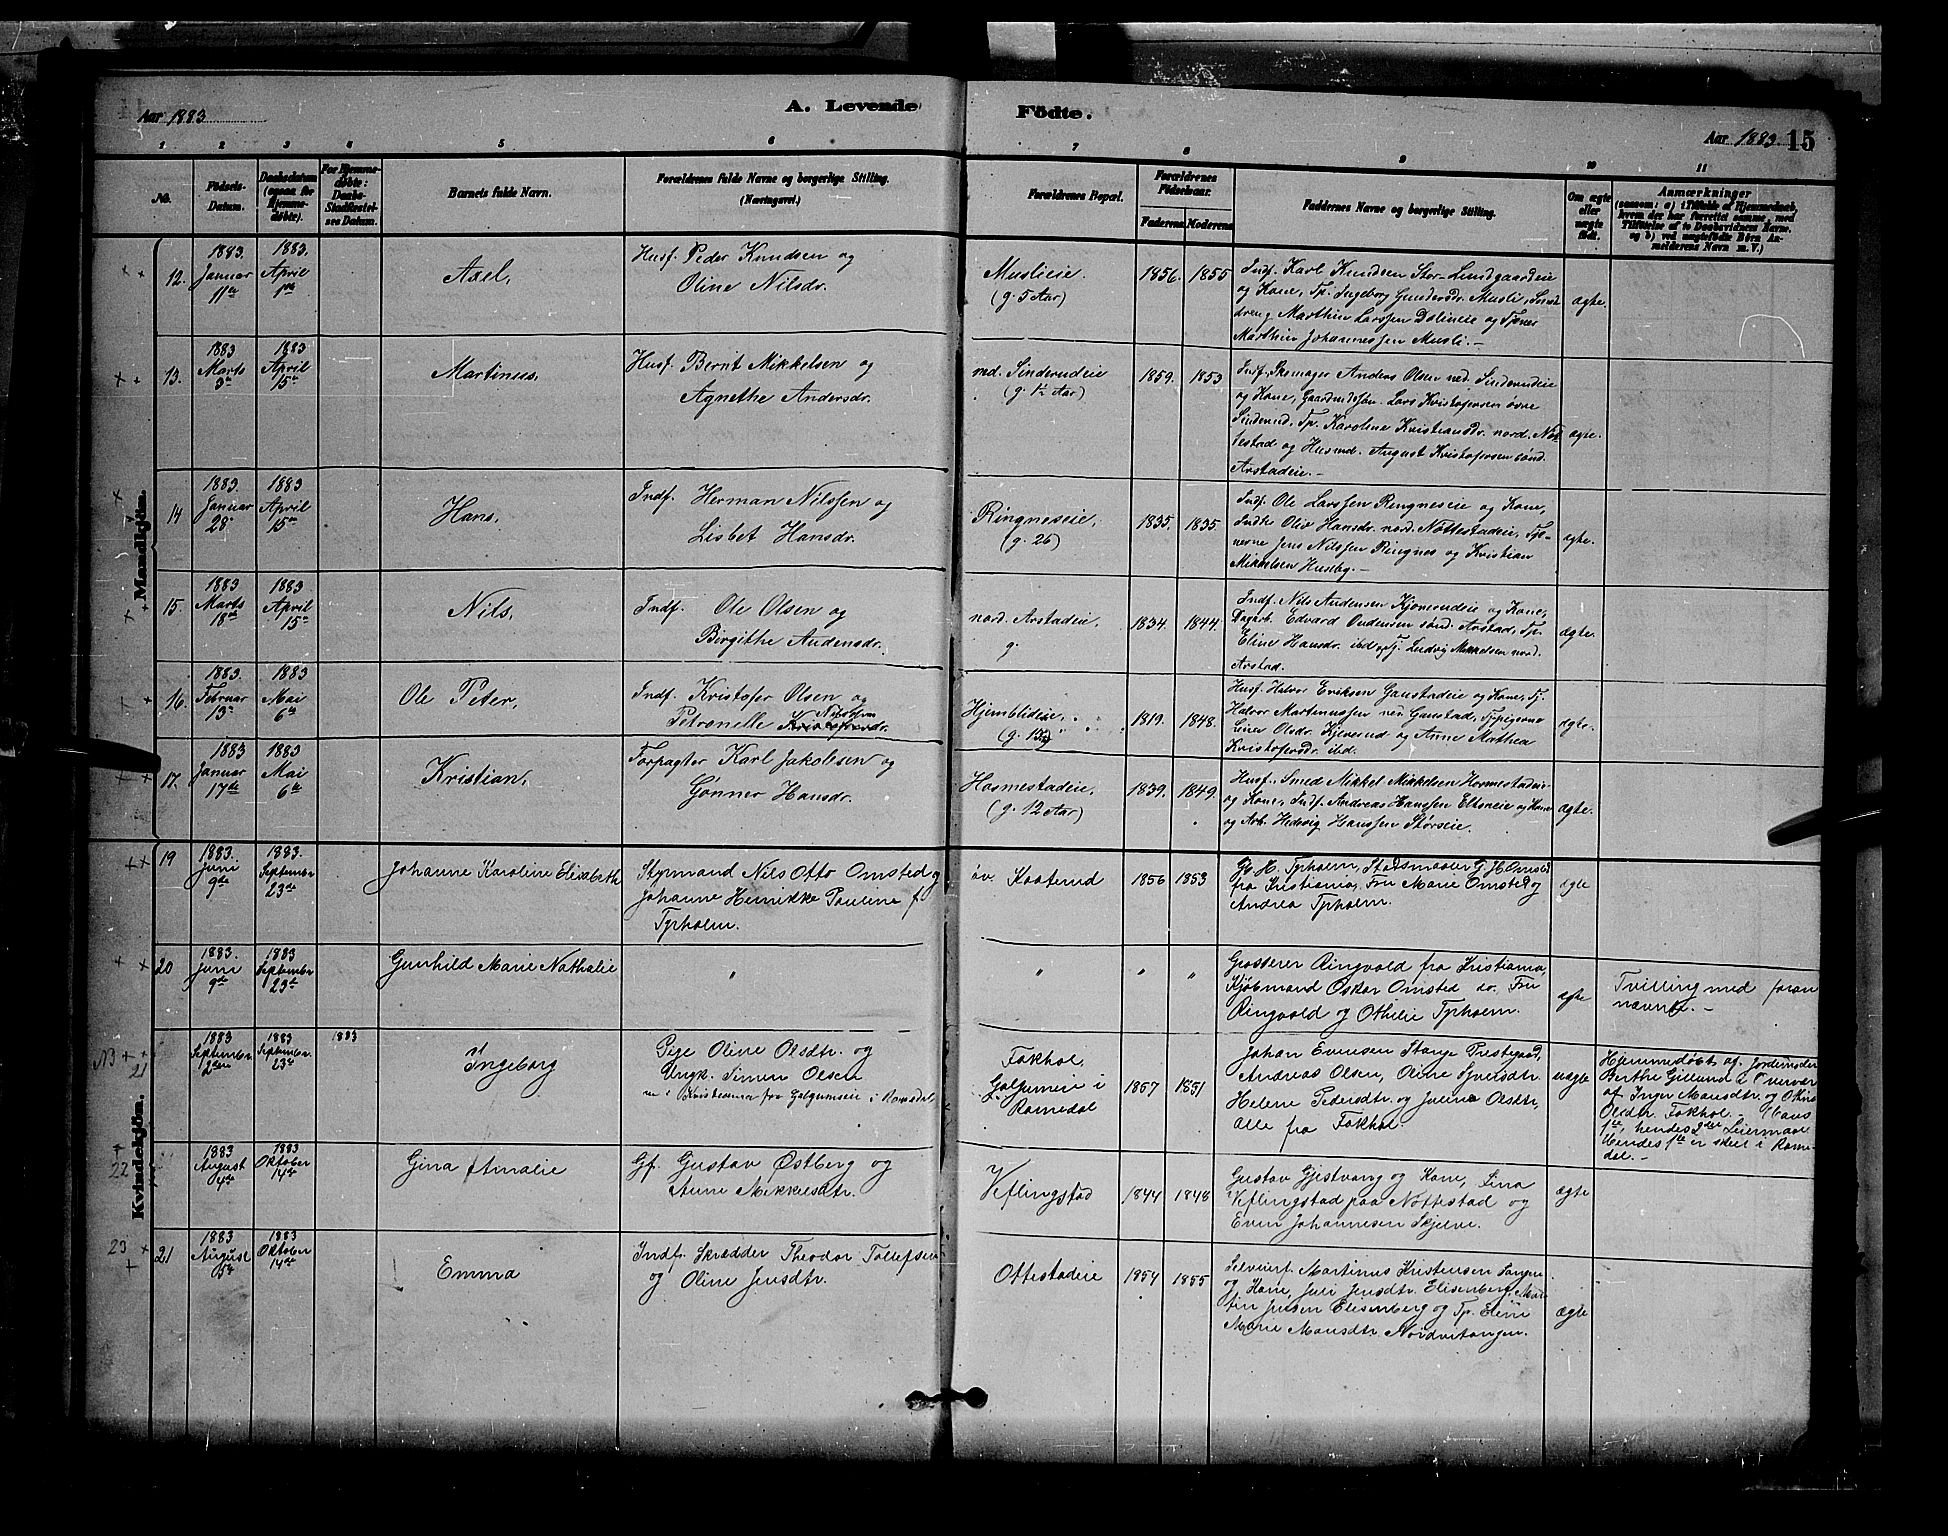 Aar 1883
A. Levende
Födte.
Aar 1883. 15
1 2 3 4 5 6
7 8 9 10 11
No.
Födsels-
Datum.
Daabsdatum
(ogsaa for
Hjemme-
döbte).
For Hjemme-
döbte:
Daabs-
Stadfæstel-
ses Datum.
Barnets fulde Navn.
Forældrenes fulde Navne og borgerlige Stilling.
(Næringsvei.)
Forældrenes Bopæl.
Forældrenes
Födselsaar.
Faderens Moderens
Faddernes Navne og borgerlige Stilling.
Om ægte
eller
uægte
födt.
Anmærkninger
(saasom: a) i Tilfælde af Hjemmedaab,
hvem der har forrettet samme, med
Tilföielse af to Daabsvidners Navne.
og b) ved uægtefödte Börn An-
melderens Navn m. V.)
Mandkjön.
12.
1883.
Januar
11te
1883.
April
1ste
Axel,
Husf. Peder Knudsen og
Oline Nilsdr.
Muslieie.
(g. 5 Aar)
1856. 1855
Indf. Karl Knudsen Stor-Lundgaardeie
og Kone, Tp. Ingeborg Gundersdr. Musli, Smed
dreng Marthin Larssen Dolineie og Tjener
Marthin Johannessen Musli.-
ægte.
13.
1883
Marts
3die
1883
April
15de
Martinus,
Husf. Bernt Mikkelsen og
Agnethe Andersdr.
ned. Sinderudeie
(g. 1½ Aar)
1859. 1853
Indf. Skomager Anders Olsen ned. Sinderudeie
og Kone, Gaardmdssøn. Lars Kristofersen øvre
Sinderud, Tp. Karoline Kristiansdr. nord. Not
testad og Husmd. August Kristofersen sønd.
Arstadeie.-
ægte.
14
1883.
Januar
28.
1883
April
15de
Hans,
Indf. Herman Nilssen og
Lisbet Hansdr.
Ringneseie,
(g. 26)
1835. 1835.
Indf. Ole Larssen Ringneseie og Kone,
Indk Oliv Hansdr. nord. Nottestadeie, Tje-
nerne Jens Nilssen Ringnes og Kristian
Mikkelsen Huseby.-
ægte.
15.
1883
Marts
18de
1883
April
15de
Nils,
Indf. Ole Olsen og
Birgithe Andersdr.
nord. Arstadeie.
g.
1834. 1844.
Indf. Nils Andersen Kjonerudeie og Kone,
Dagarb. Edvard Oudensen sønd. Arstad, Tp.
Eline Hansdr. ibid og Tj. Ludvig Mikkelsen nord.
Arstad.
ægte.
16.
1883.
Februar
13de
1883
Mai
6te
Ole Peter,
Indf. Kristofer Olsen og
Petronelle
Hjemblideie,
1819. 1848.
Husf. Halvor Eriksen Gaustadeie og Kone, Tj.
Halvor Martinussen ned. Gaustad, Tjpigerne
Olsdr. Kjeverud og Anne Mathea
Kristofersdr ibd.
ægte.
17.
1883
Januar
17de
1883
Mai
6te
Kristian,
Forpagter Karl Jakobsen og
Gønner Hansdr.
Hosmestadeie,
(g. 12 Aar)
1839. 1849.
Husf. Smed Mikkel Mikkelsen Hosmestadeie
og Kone, Indf. Andreas Hanssen Eltoneie og Kone
og Arb. Hedevig Hanssen Størseie.
ægte.
Kvindekjön.
19
1883.
Juni
9de
1883.
September
23de
Johanne Karoline Elisabeth
Styrmand Nils Otto Omsted og
Johanne Henrikke Pauline f.
Tyrholm.
øv Kaaterud
1856 1853
Gb. H. Tyrholm, Stadsmaaler G. H. Omsted
fra Kristiania, Fru Marie Omsted og
Andrea Tyrholm.
ægte
20
1883.
Juni
9de
1883
September
23de
Gunhild Marie Nathalie
"
" " "
Grosserer Ringvold fra Kristiania,
Kjøbmand Oskar Omsted do. Fru
Ringvold og Othilie Tyrholm.
ægte
Tvilling med foran
nævnte.-
NB
21
1883
September
2den
1883
September
23de
1883
Ingeborg
Pige Oline Olsdtr. og
Ungk. Simen Olsen
nu i Kristiania fra Galgumseie i Romedal
Fokhol.
Galgumeie i
Romedal
1857 1851
Johan Evensen Stange Prestegaard,
Andreas Olsen, Oline Syversdtr.
Helene Pedersdtr. og Juline Olsdtr,
Alle fra Fokhol.
uægte
Hjemmedøbt af Jordemoder
Berthe Gillund i Overvær
af Inger Monsdtr. og Oline
Olsdtr. Fokhol.- Hans
1ste, hendes 2det Leiermaal
Hendes 1ste er skeet i Rome-
dal.-
22
1883
August
4de
1883
Oktober
14de
Gina Amalie
Gf. Gustav Østberg og
Anne Mikkelsdtr.
Veflingstad
1844 1848
Gustav Gjestvang og Kone, Lina
Veflingstad paa Nottestad og
Even Johannesen Skjelve.
ægte
23
21
1883
August
5te
1883
Oktober
14de
Emma
Indf. Skrædder Theodor Tollefsen
og Oline Jensdtr.
Ottestadeie
1854 1855
Selveierf. Martinus Kristensen
og Kone, Juli Jensdtr. Elisenberg, Mar-
tin Jensen Elisenberg og Tp. Eline
Marie Monsdtr Nordvitangen.
ægte